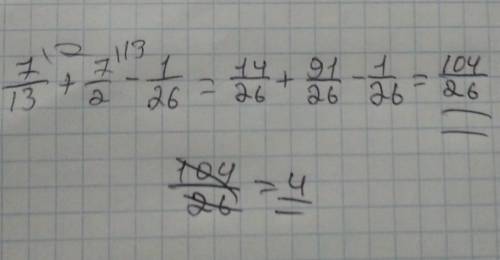 7/13 \2 + 7/2 \13 - 1/26 = 14/26 + 91/26 - 1/26 = 104/26
104/26 = 4